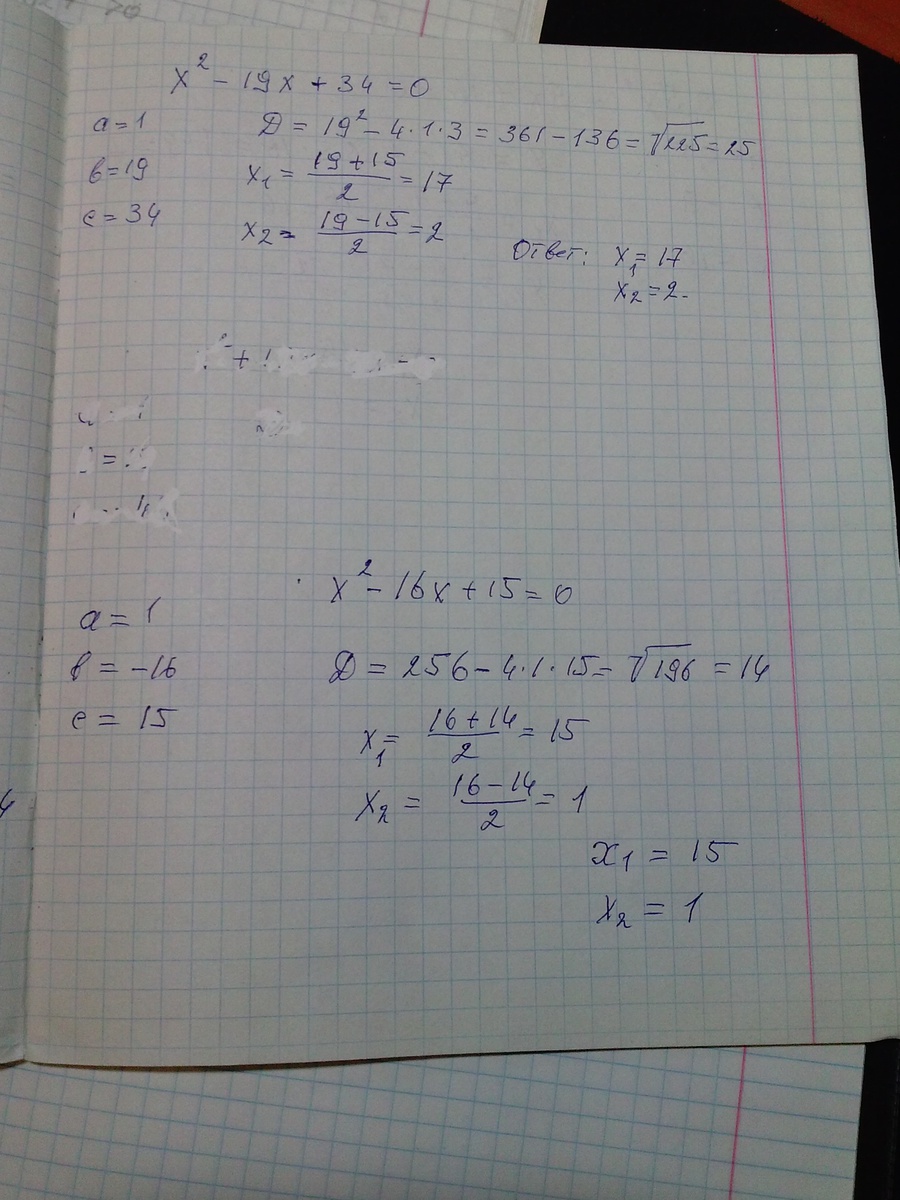 x² - 19x + 34 = 0
a = 1
D = 19² - 4·1·3 = 361 - 136 = √225 = 25
в = 19
x₁ = (19 + 15)/2 = 17
c = 34
x₂ = (19 - 15)/2 = 2
Ответ: x₁ = 17
x₂ = 2.
x² - 16x + 15 = 0
a = 1
в = -16
D = 256 - 4·1·15 = √196 = 14
c = 15
x₁ = (16 + 14)/2 = 15
x₂ = (16 - 14)/2 = 1
x₁ = 15
x₂ = 1